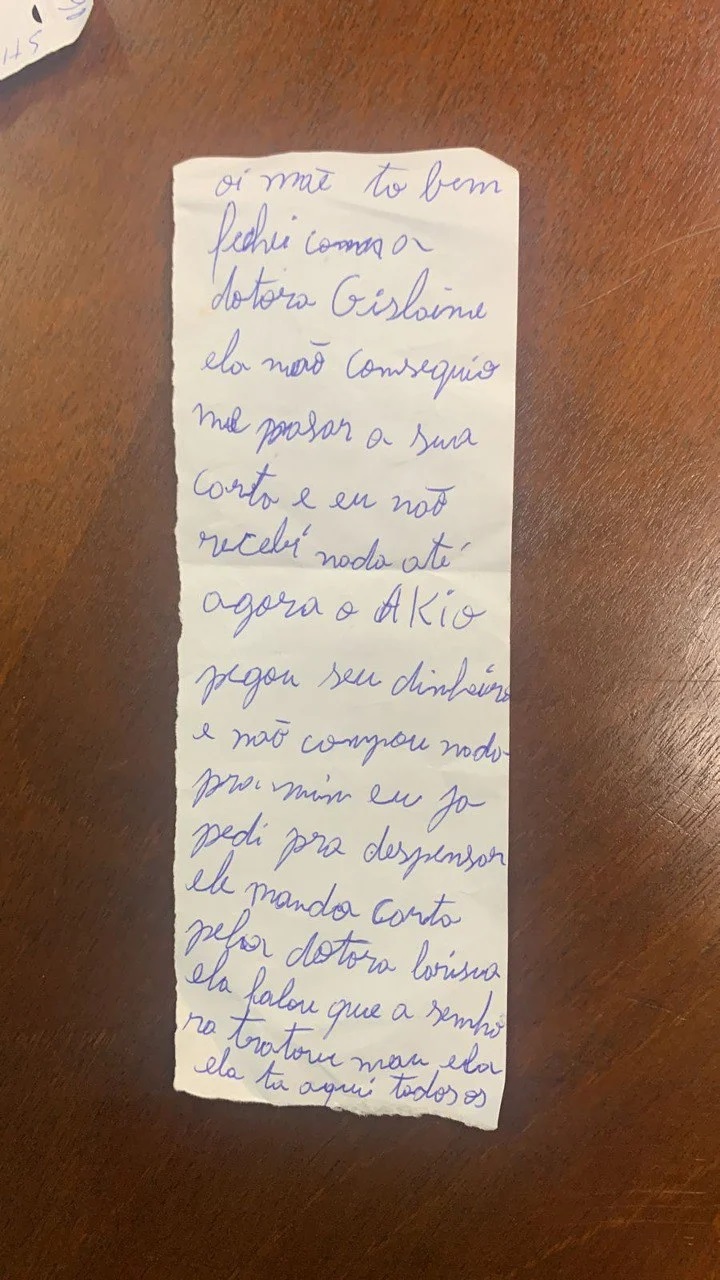 oi mãe to bem
fechei com a
dotora Gislaine
ela não conseguio
me pasar a sua
carta e eu não
recebí nada até
agora o AKio
pegou seu dinheiro
e não compou nada
pra mim eu ja
pedi pra despensar
ele manda carta
pela dotora larisa
ela falou que a senho
ra tratou mau ela
ela ta aqui todos os